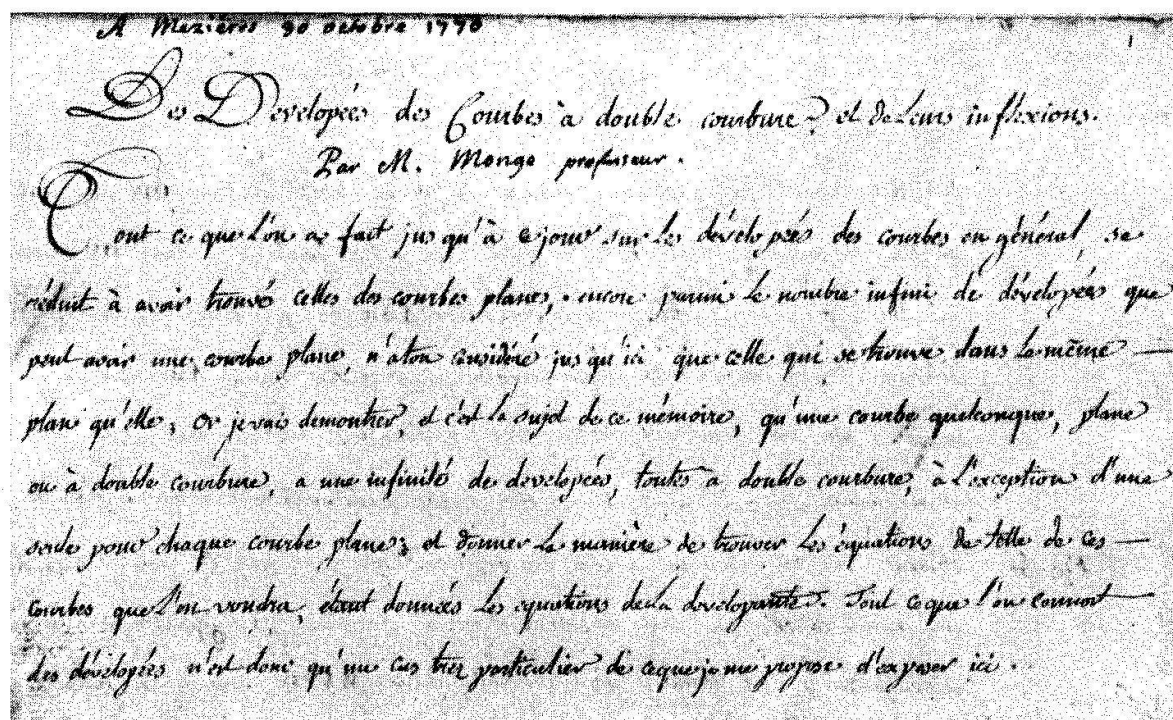 A Mezières 30 octobre 1770
1
Des Developées des Courbes à double courbure, et de Leurs inflexions.
Par M. Monge professeur.
Tout ce que l'on a fait jusqu'à ce jour sur les dévelopées des courbes en général, se
réduit à avoir trouvé celles des courbes planes, encore parmi le nombre infini de dévelopées que
peut avoir une courbe plane, n'aton considéré jusqu'ici que celle qui se trouve dans le même
plan qu'elle, or je vais démontrer, et c'est le sujet de ce mémoire, qu'une courbe quelconque, plane
ou à double courbure, a une infinité de developées, toutes à double courbure, à l'exception d'une
seule pour chaque courbe plane; et donner la manière de trouver les équations de telle de ces
courbes que l'on voudra, étant données les équations de la developante. Tout ce que l'on connoit
des dévelopées n'est donc qu'un cas très particulier de ce que je me propose d'exposer ici.